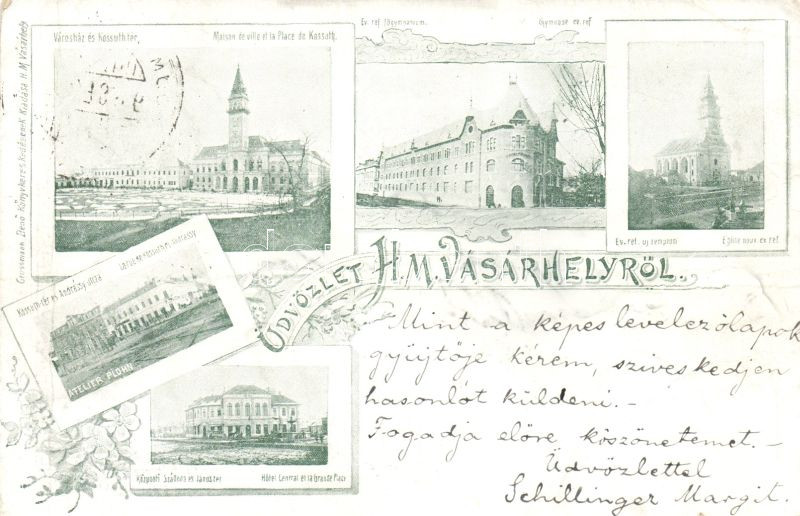 Városház és Kossuth tér.
Maison de ville et la Place de Kossuth.
Ev. ref. főgymnasium.
Gymnase ev. ref.
Ev. ref. új templom
Église nouv. ev. ref.
Kossuth-tér és Andrássy utca
ATELIER PLOHN
ÜDVÖZLET H.M.VÁSÁRHELYRŐL.
Központi Szálloda és
Hôtel Central et la Grande Place
Mint a képes levelezőlapok
gyüjtője kérem, sziveskedjen
hasonlót küldeni. -
Fogadja előre köszönetemet. -
Üdvözlettel
Schillinger Margit.
Kiadása H. M. Vásárhely